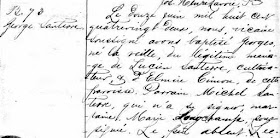 B. 78
George Santerre
Le douze juin mil huit cent
quatrevingt deux, nous, vicaire
soussigné avons baptisé George,
né la veille du légitime maria-
ge de Lucien Santerre, cultiva-
teur & d'Elmire Simon de cette
paroisse. Parrain Michel San-
terre, qui n'a su signer, mar-
raine, Marie
signé. Le père absent.